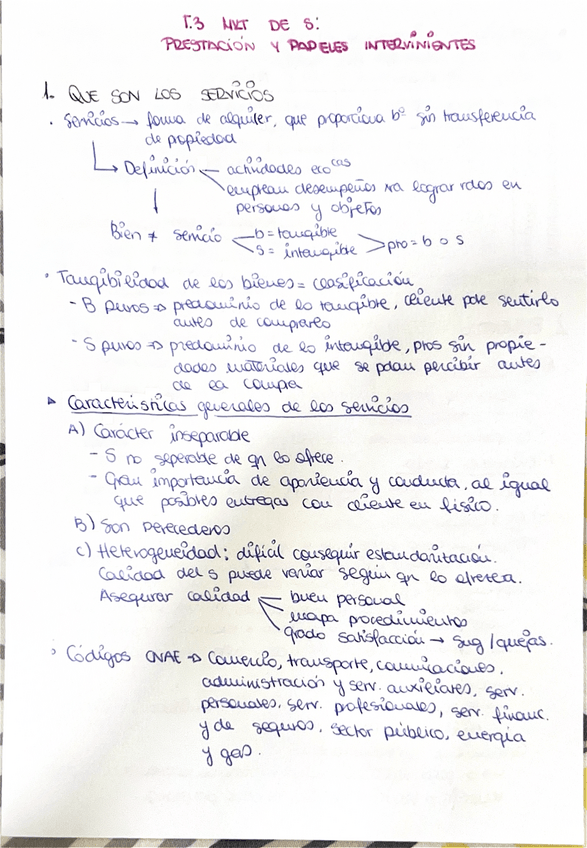 T.3 MKT DE S:
PRESTACIÓN Y PAPELES INTERVINIENTES
1. QUE SON LOS SERVICIOS
· Servicios → forma de alquiler, que proporciona bº sin transferencia
de propiedad
→ Definición — actividades eco cas
emplean desempeños xra lograr rdos en
personas y objetos
Bien ≠ servicio
b = tangible
s = intangible > pro = b o s
· Tangibilidad de los bienes = clasificación
- B puros ⇒ predominio de lo tangible, cliente pde sentirlo
antes de comprarlo
- S puros ⇒ predominio de lo intangible, ptos sin propie-
dades materiales que se pdan percibir antes
de la compra
▸ Características generales de los servicios
A) Carácter inseparable
- S no seperable de qn lo ofrece.
- Gran importancia de apariencia y conducta, al igual
que posibles entregas con cliente en físico.
B) Son perecederos
C) Heterogeneidad: difícil conseguir estandaritación.
Calidad del s puede variar según qn lo ofrezca.
Asegurar calidad — buen personal
mapa procedimientos
grado satisfacción → sug/quejas.
· Códigos CNAE → Comercio, transporte, comunicaciones,
administración y serv. auxiliares, serv.
personales, serv. profesionales, serv. financ.
y de seguros, sector público, energía
y gas.